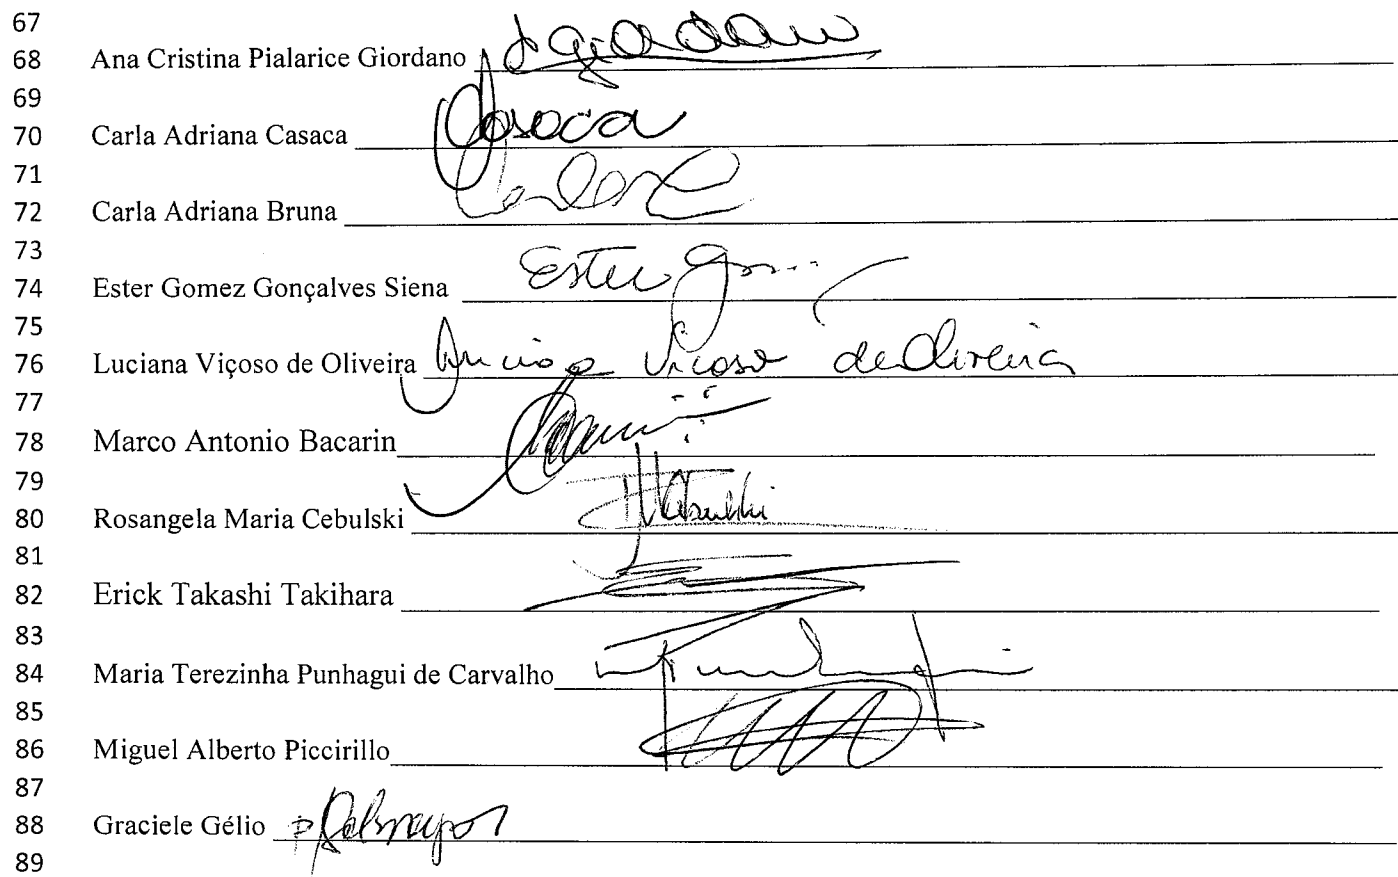 67
68 Ana Cristina Pialarice Giordano
69
70 Carla Adriana Casaca Casaca
71
72 Carla Adriana Bruna
73
74 Ester Gomez Gonçalves Siena Ester
75
76 Luciana Viçoso de Oliveira Luciana Viçoso de Oliveira
77
78 Marco Antonio Bacarin
79
80 Rosangela Maria Cebulski
81
82 Erick Takashi Takihara
83
84 Maria Terezinha Punhagui de Carvalho
85
86 Miguel Alberto Piccirillo
87
88 Graciele Gélio
89